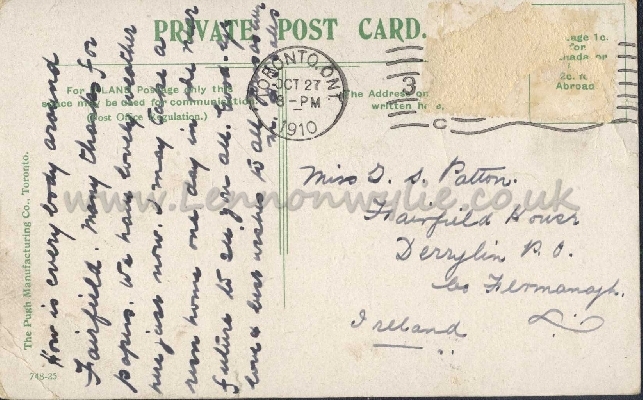 PRIVATE POST CARD.
For INLAND Postage only this
space may be used for communication
(Post Office Regulation.)
The Address on
written here.
age 1c.
for
Canada or
2c. to
Abroad
TORONTO, ONT.
OCT 27
8-PM
1910
3
C
How is every body around
Fairfield. Many thanks for
papers. We have lovely weather
here just now. I may take a
run home one day in the near
future to see you all.
love & best wishes to all
Miss G. S. Patton.
Fairfield House
Derrylin P.O.
Co Fermanagh.
Ireland
The Pugh Manufacturing Co., Toronto.
748-25
www.Lennonwylie.co.uk